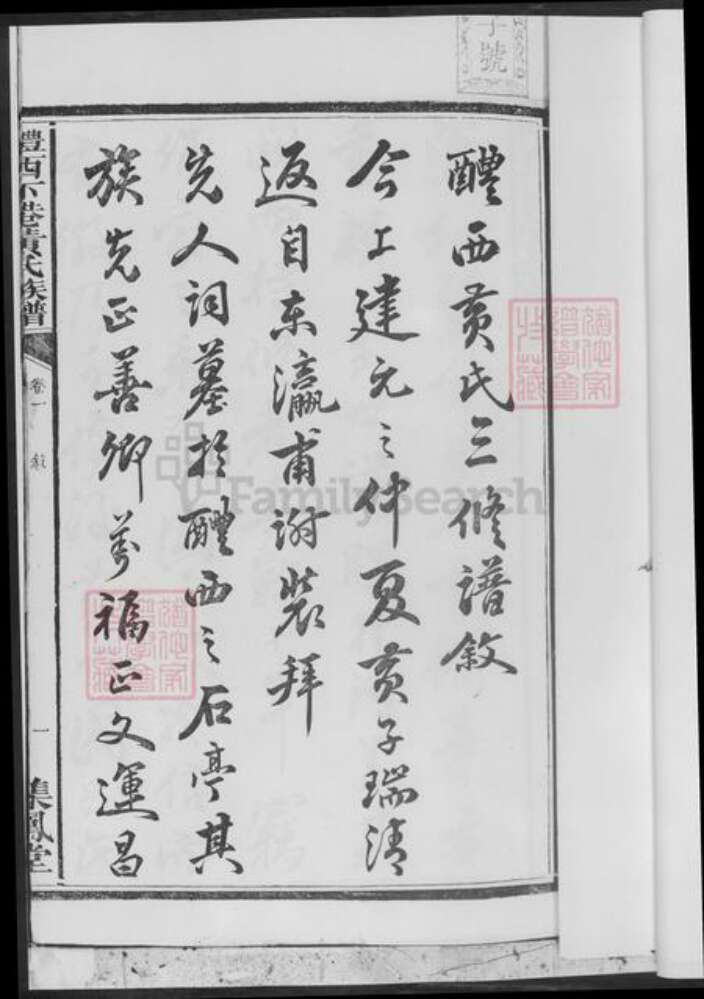 字號
醴西黃氏三修譜敘
今上建元之仲夏黃子瑞清
返自東瀛甫謝裝拜
先人祠墓於醴西之石亭其
族先正善卿萬福正文運昌
醴西下巷黃氏族譜
卷一
敘
一
集鳳堂
FamilySearch